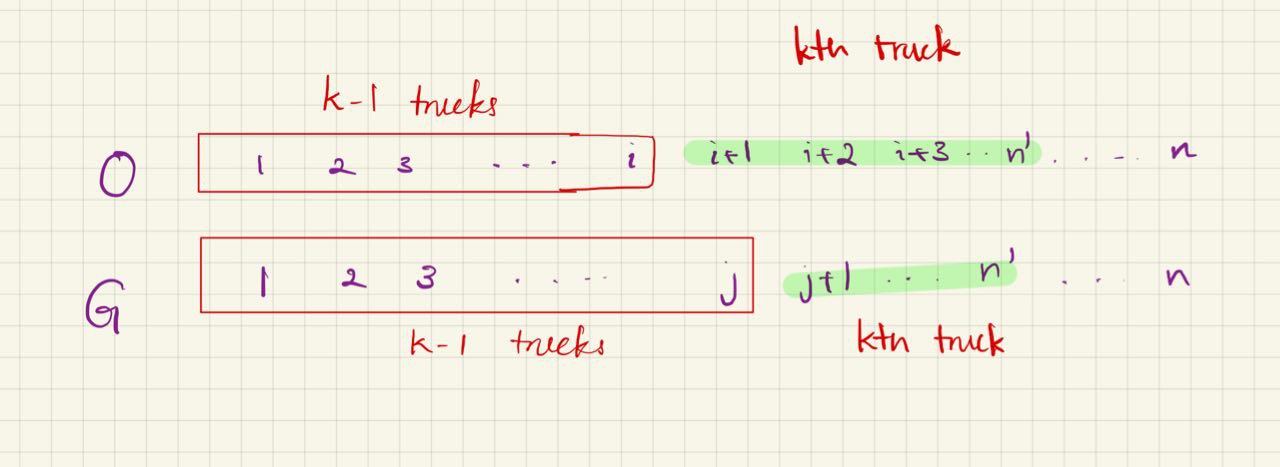 kth truck
k-1 trucks
O 1 2 3 ... i i+1 i+2 i+3 .. n' .... n
G 1 2 3 .... j j+1 ... n' .. n
k-1 trucks kth truck